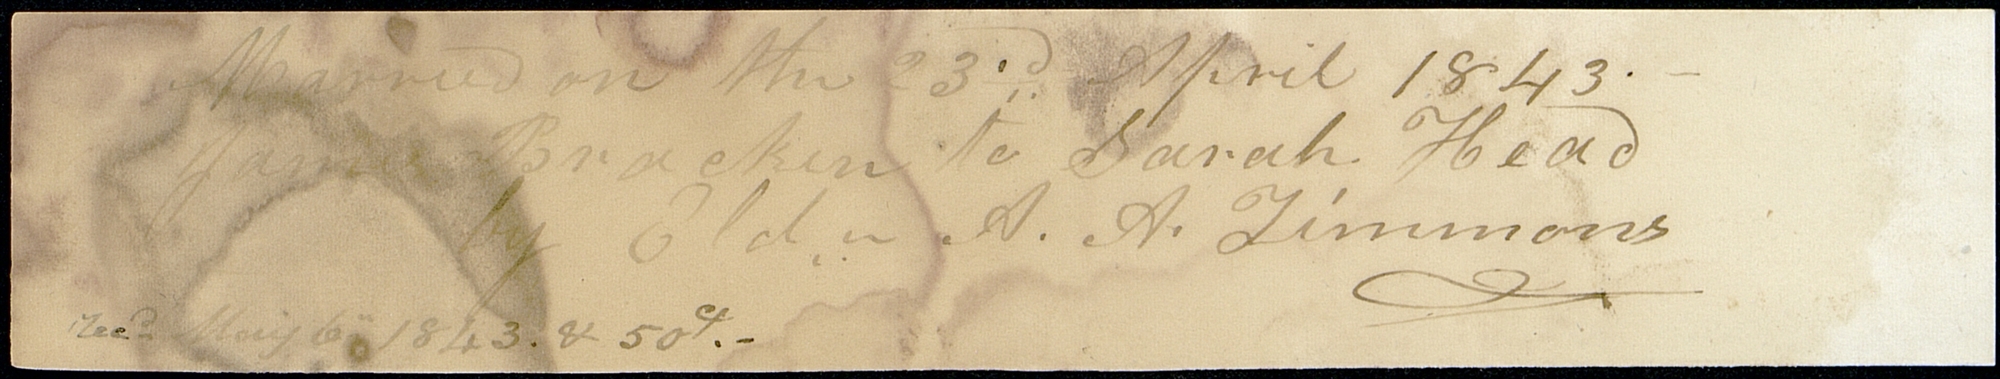 Married on the 23.d April 1843. -
James Bracken to Sarah Head
by Eldr A. A. Timmons
Recd May 6" 1843. & 50ct. -